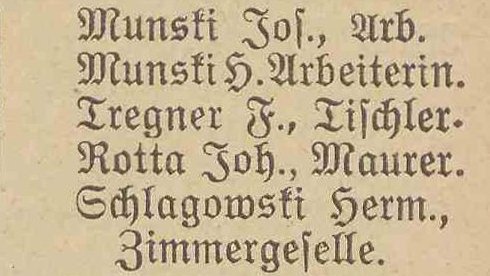 Munski Jos., Arb.
Munski H. Arbeiterin.
Tregner F., Tischler.
Rotta Joh., Maurer.
Schlagowski Herm.,
Zimmergeselle.